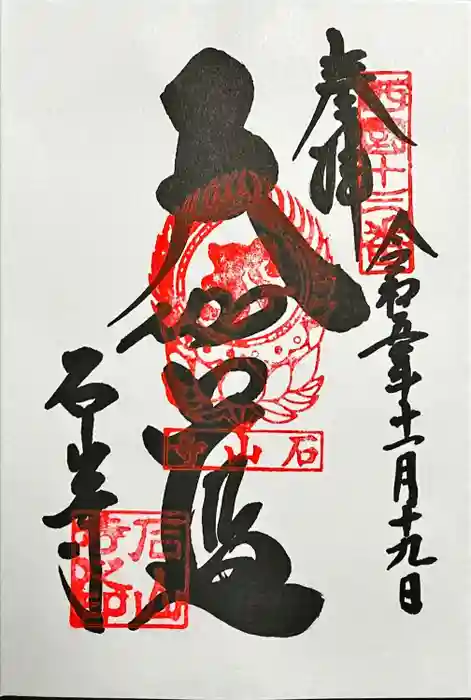 奉拝
西国十三番
令和五年十一月十九日
大伽藍
石山寺
石山寺
石山寺之印